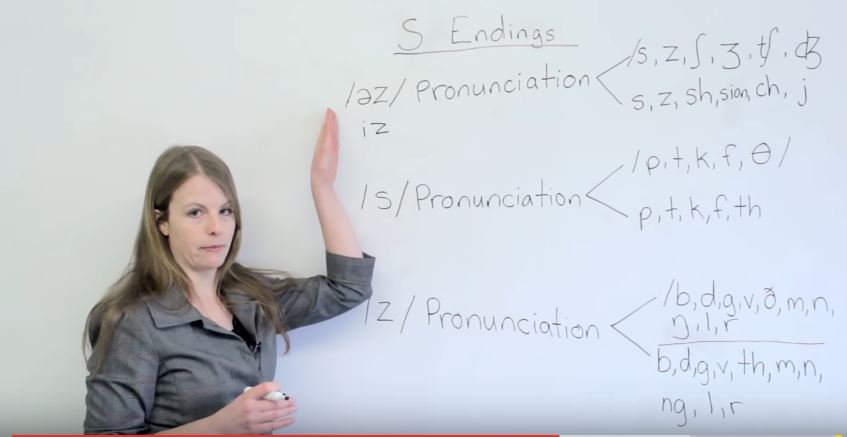 S Endings
/əz/ Pronunciation
iz
/s, z, ʃ, ʒ, tʃ, dʒ
s, z, sh, sion, ch, j
/s/ Pronunciation
/p, t, k, f, θ/
p, t, k, f, th
/z/ Pronunciation
/b, d, g, v, ð, m, n,
ŋ, l, r
b, d, g, v, th, m, n,
ng, l, r